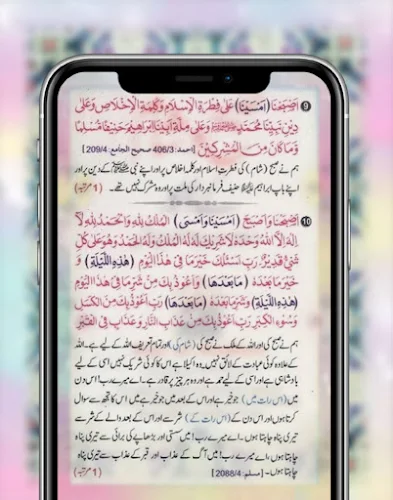 ❾ اَصْبَحْنَا (اَمْسَيْنَا) عَلٰى فِطْرَةِ الْاِسْلَامِ وَكَلِمَةِ الْاِخْلَاصِ وَعَلٰى
دِيْنِ نَبِيِّنَا مُحَمَّدٍ ﷺ وَعَلٰى مِلَّةِ اَبِيْنَا اِبْرَاهِيْمَ حَنِيْفًا مُّسْلِمًا
وَمَا كَانَ مِنَ الْمُشْرِكِيْنَ [احمد: 406/3 صحیح الجامع: 209/4]
ہم نے صبح (شام) کی فطرتِ اسلام اور کلمہ اخلاص پر اور اپنے نبی ﷺ کے دین پر اور
اپنے باپ ابراہیم علیہ السلام حنیف فرمانبردار کی ملت پر اور وہ مشرک نہیں تھے۔ (1 مرتبہ)
❿ اَصْبَحْنَا وَاَصْبَحَ (اَمْسَيْنَا وَاَمْسَى) الْمُلْكُ لِلّٰهِ وَالْحَمْدُ لِلّٰهِ لَا
اِلٰهَ اِلَّا اللّٰهُ وَحْدَهٗ لَا شَرِيْكَ لَهٗ لَهُ الْمُلْكُ وَلَهُ الْحَمْدُ وَهُوَ عَلٰى كُلِّ
شَيْءٍ قَدِيْرٌ، رَبِّ اَسْئَلُكَ خَيْرَ مَا فِيْ هٰذَا الْيَوْمِ (هٰذِهِ اللَّيْلَةِ) وَ
خَيْرَ مَا بَعْدَهٗ (مَا بَعْدَهَا) وَاَعُوْذُ بِكَ مِنْ شَرِّ مَا فِيْ هٰذَا الْيَوْمِ
(هٰذِهِ اللَّيْلَةِ) وَشَرِّ مَا بَعْدَهٗ (مَا بَعْدَهَا) رَبِّ اَعُوْذُ بِكَ مِنَ الْكَسَلِ
وَسُوْءِ الْكِبَرِ رَبِّ اَعُوْذُ بِكَ مِنْ عَذَابٍ فِي النَّارِ وَعَذَابٍ فِي الْقَبْرِ
ہم نے صبح کی اور اللہ کے ملک نے صبح کی (شام کی) اور تمام تعریف اللہ کے لیے ہے۔ اللہ
کے علاوہ کوئی عبادت کے لائق نہیں۔ وہ اکیلا ہے اس کا کوئی شریک نہیں اسی کے لیے
بادشاہی ہے اور اسی کے لیے حمد ہے اور وہ ہر چیز پر قادر ہے۔ اے میرے رب! اس دن
میں (اس رات میں) جو خیر ہے اور اس کے بعد میں جو خیر ہے میں اس کا تجھ سے سوال
کرتا ہوں اور اس دن کے (اس رات کے) شر سے اور اس کے بعد والے کے شر سے
تیری پناہ چاہتا ہوں۔ اے میرے رب! میں سستی اور بڑھاپے کی برائی سے تیری پناہ
چاہتا ہوں، اے میرے رب! میں آگ کے عذاب اور قبر کے عذاب سے تیری پناہ
چاہتا ہوں۔ [مسلم: 2088/4] (1 مرتبہ)